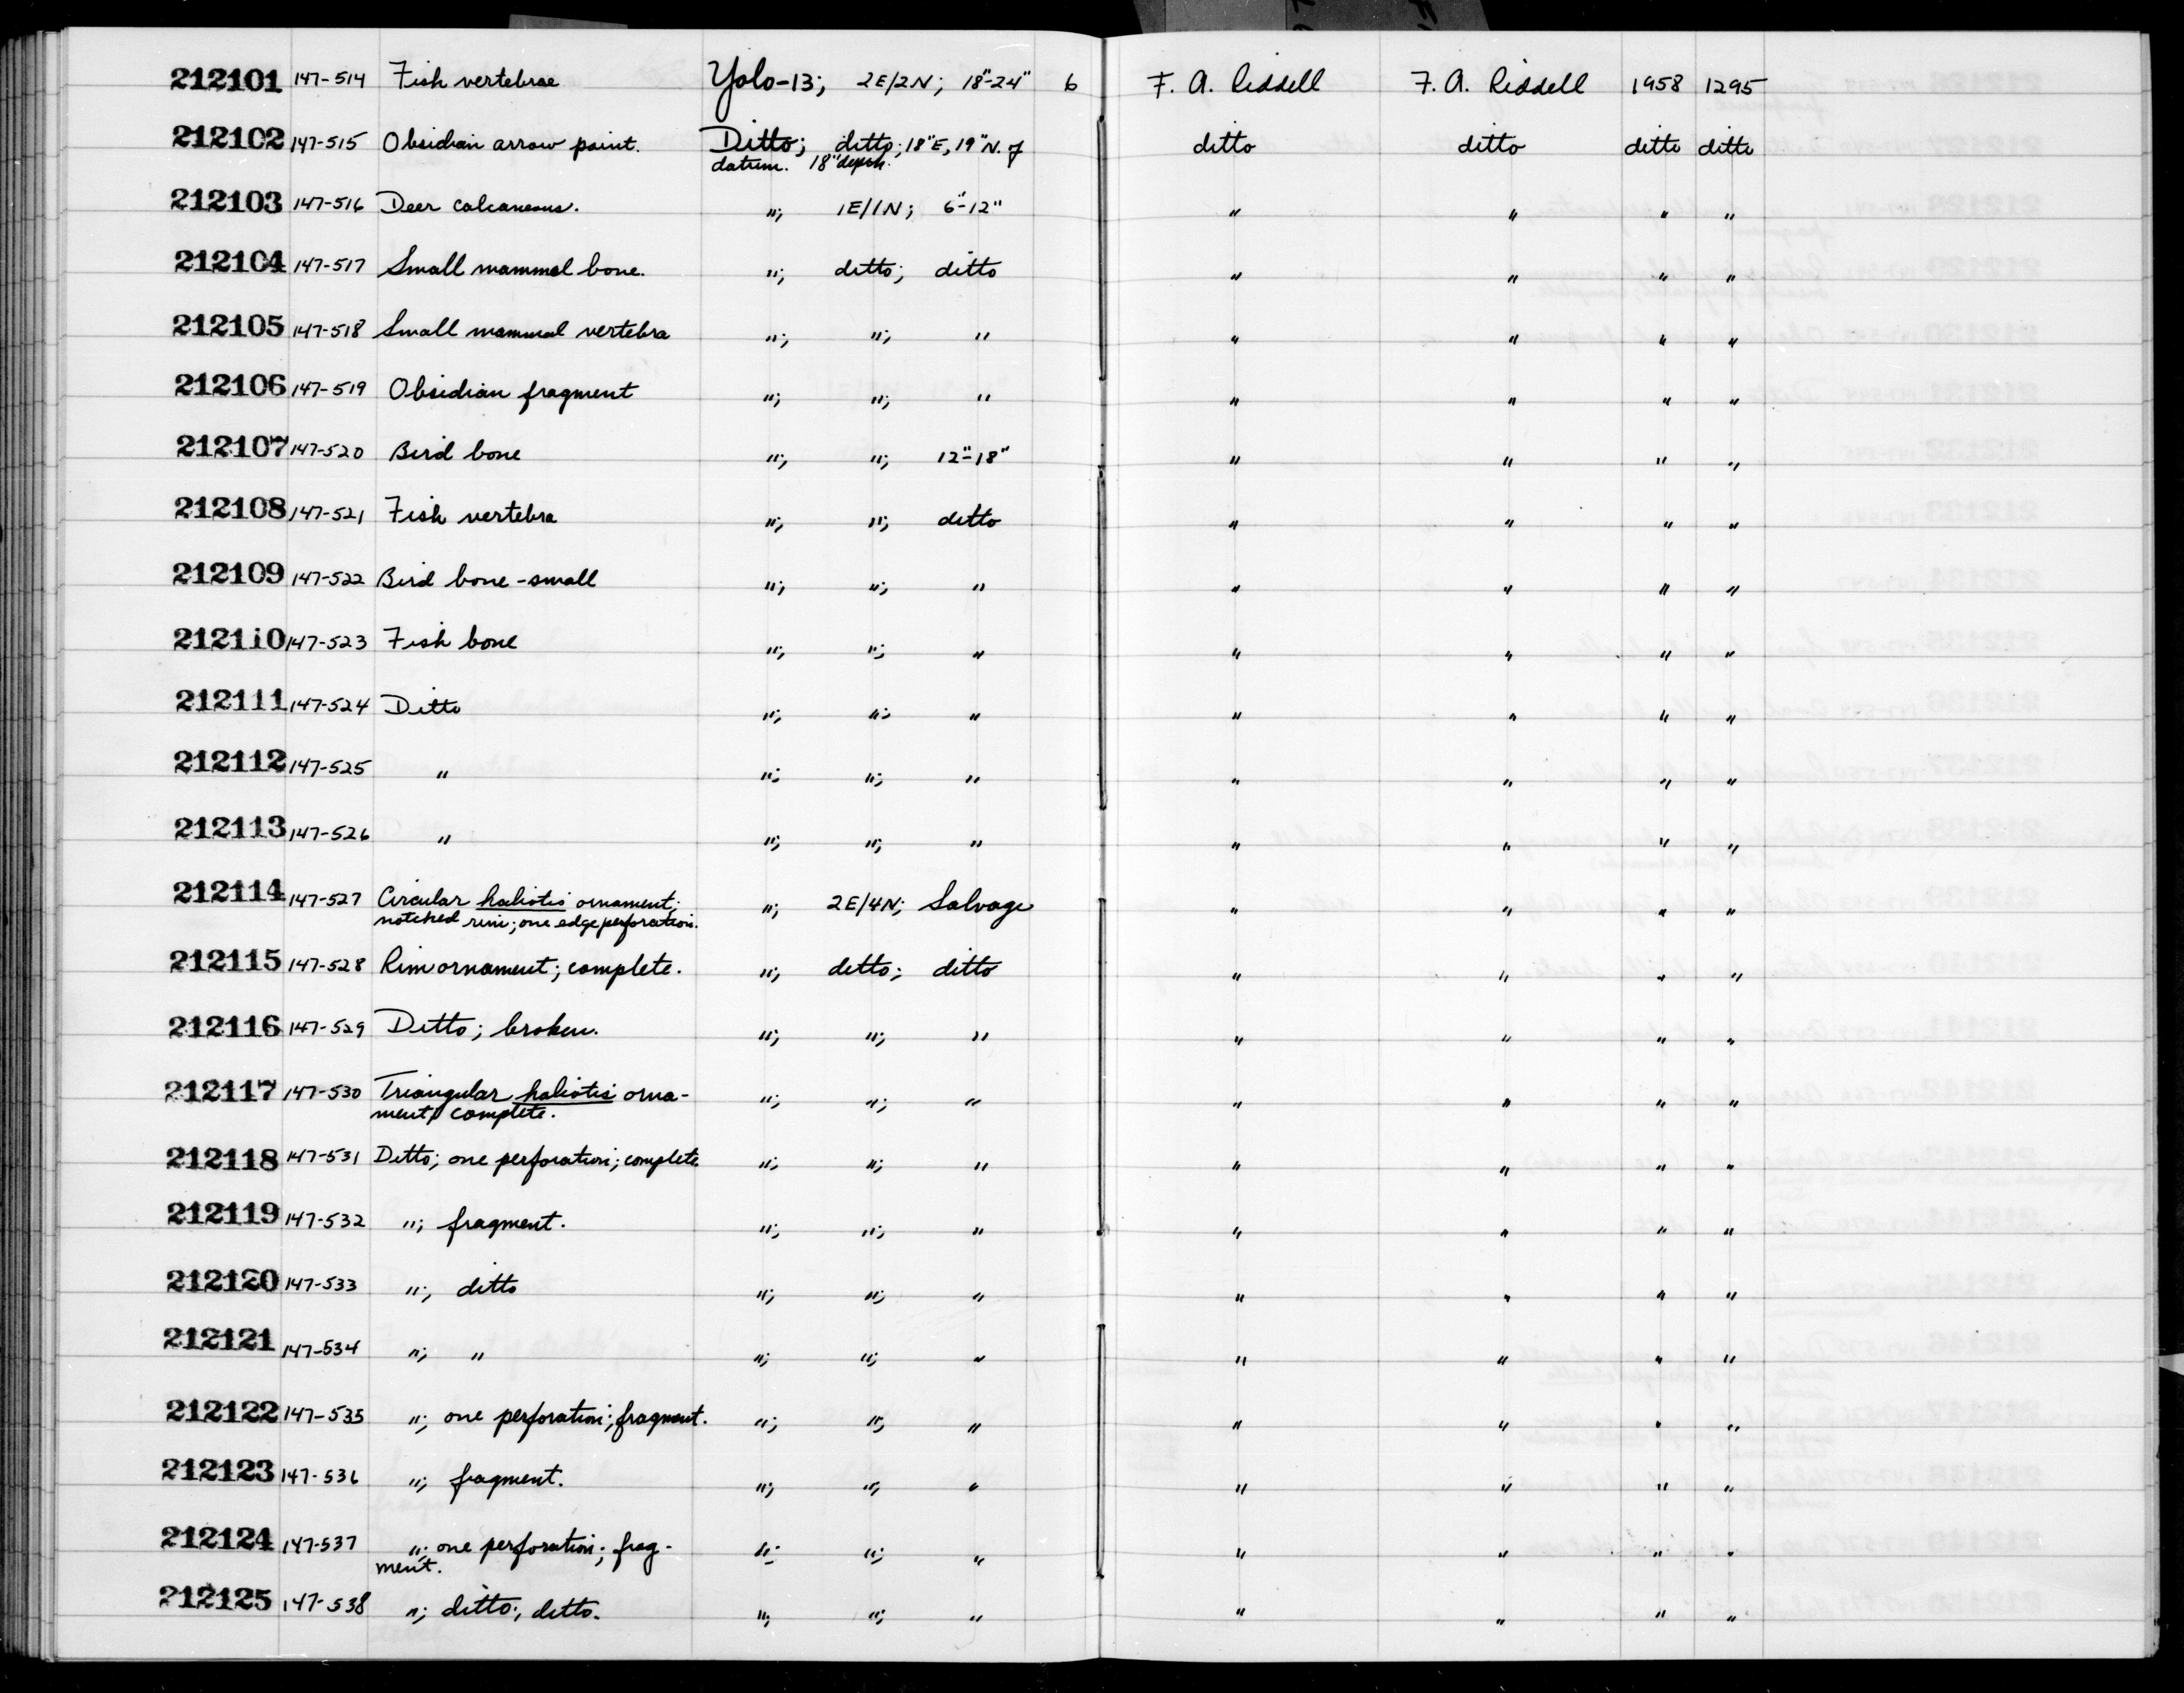 212101 147-514 Fish vertebrae Yolo-13; 2E/2N; 18"-24" 6 F. A. Riddell F. A. Riddell 1958 1295
212102 147-515 Obsidian arrow point. Ditto; ditto; 18"E, 19"N. of ditto ditto ditto ditto
datum. 18" depth.
212103 147-516 Deer calcaneous. "; 1E/1N; 6"-12" " " " "
212104 147-517 Small mammal bone. "; ditto; ditto " " " "
212105 147-518 Small mammal vertebra "; "; " " " " "
212106 147-519 Obsidian fragment "; "; " " " " "
212107 147-520 Bird bone "; "; 12"-18" " " " "
212108 147-521 Fish vertebra "; "; ditto " " " "
212109 147-522 Bird bone - small "; "; " " " " "
212110 147-523 Fish bone "; "; " " " " "
212111 147-524 Ditto "; "; " " " " "
212112 147-525 " "; "; " " " " "
212113 147-526 " "; "; " " " " "
212114 147-527 Circular haliotis ornament; "; 2E/4N; Salvage " " " "
notched rim; one edge perforation.
212115 147-528 Rim ornament; complete. "; ditto; ditto " " " "
212116 147-529 Ditto; broken. "; "; " " " " "
212117 147-530 Triangular haliotis orna- "; "; " " " " "
ment; complete.
212118 147-531 Ditto; one perforation; complete "; "; " " " " "
212119 147-532 "; fragment. "; "; " " " " "
212120 147-533 "; ditto "; "; " " " " "
212121 147-534 "; " "; "; " " " " "
212122 147-535 "; one perforation; fragment. "; "; " " " " "
212123 147-536 "; fragment. "; "; " " " " "
212124 147-537 "; one perforation; frag- "; "; " " " " "
ment.
212125 147-538 "; ditto; ditto. "; "; " " " " "